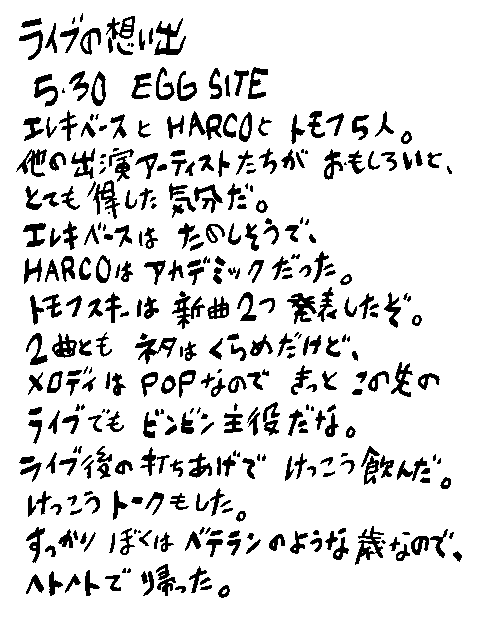 ライブの想い出
5.30 EGG SITE
エレキベースと HARCOと トモフ5人。
他の出演アーティストたちが おもしろいと、
とても 得した 気分だ。
エレキベースは たのしそうで、
HARCOは アカデミックだった。
トモフスキーは 新曲2つ 発表したぞ。
2曲とも ネタは くらめだけど、
メロディは POPなので きっと この先の
ライブでも ビンビン主役だな。
ライブ後の打ちあげで けっこう飲んだ。
けっこうトークもした。
すっかり ぼくは ベテランのような歳なので、
ヘトヘトで 帰った。